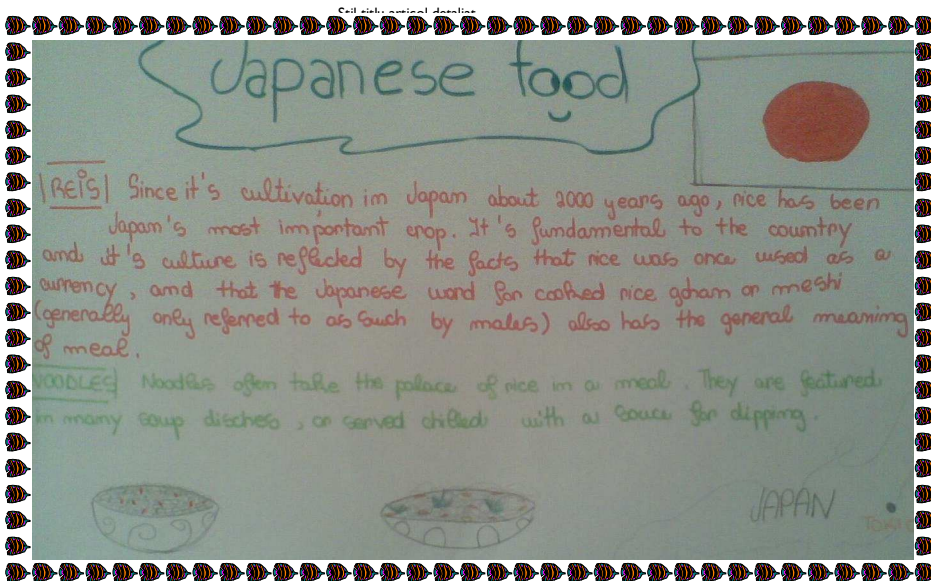 Stil titlu articol detaliat
Japanese food
REIS Since it's cultivation im Japam about 2000 years ago, rice has been
Japam's most important crop. It's fundamental to the country
and it's culture is reflected by the facts that rice was once used as a
currency, and that the Japanese word for cooked rice goham or meshi
(generally only referred to as such by males) also has the general meaning
of meal.
NOODLES Noodles often take the palace of rice in a meal. They are featured
in many soup disches, or served chilled with a sauce for dipping.
JAPAN
TOKIO